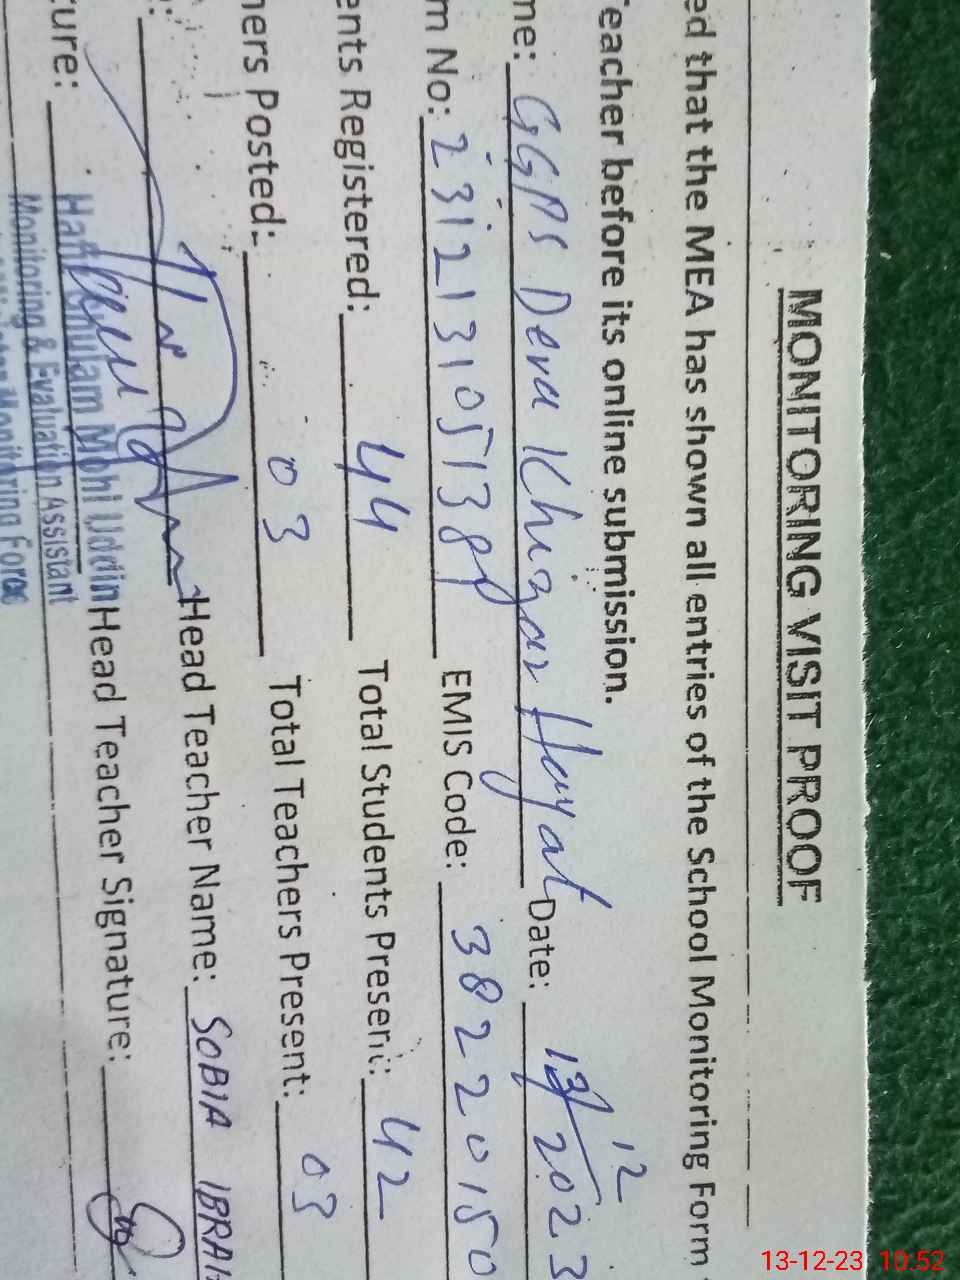 MONITORING VISIT PROOF
ed that the MEA has shown all entries of the School Monitoring Form
eacher before its online submission.
me: GGPS Dera Khizar Hayat Date: 13/12/2023
m No: EMIS Code: 38220150
ents Registered: 44 Total Students Present: 42
hers Posted: 03 Total Teachers Present: 03
Head Teacher Name: SOBIA IBRAH
ture: Head Teacher Signature:
Ghulam Mohi Uddin
Monitoring & Evaluation Assistant
Monitoring Force
13-12-23 10:52